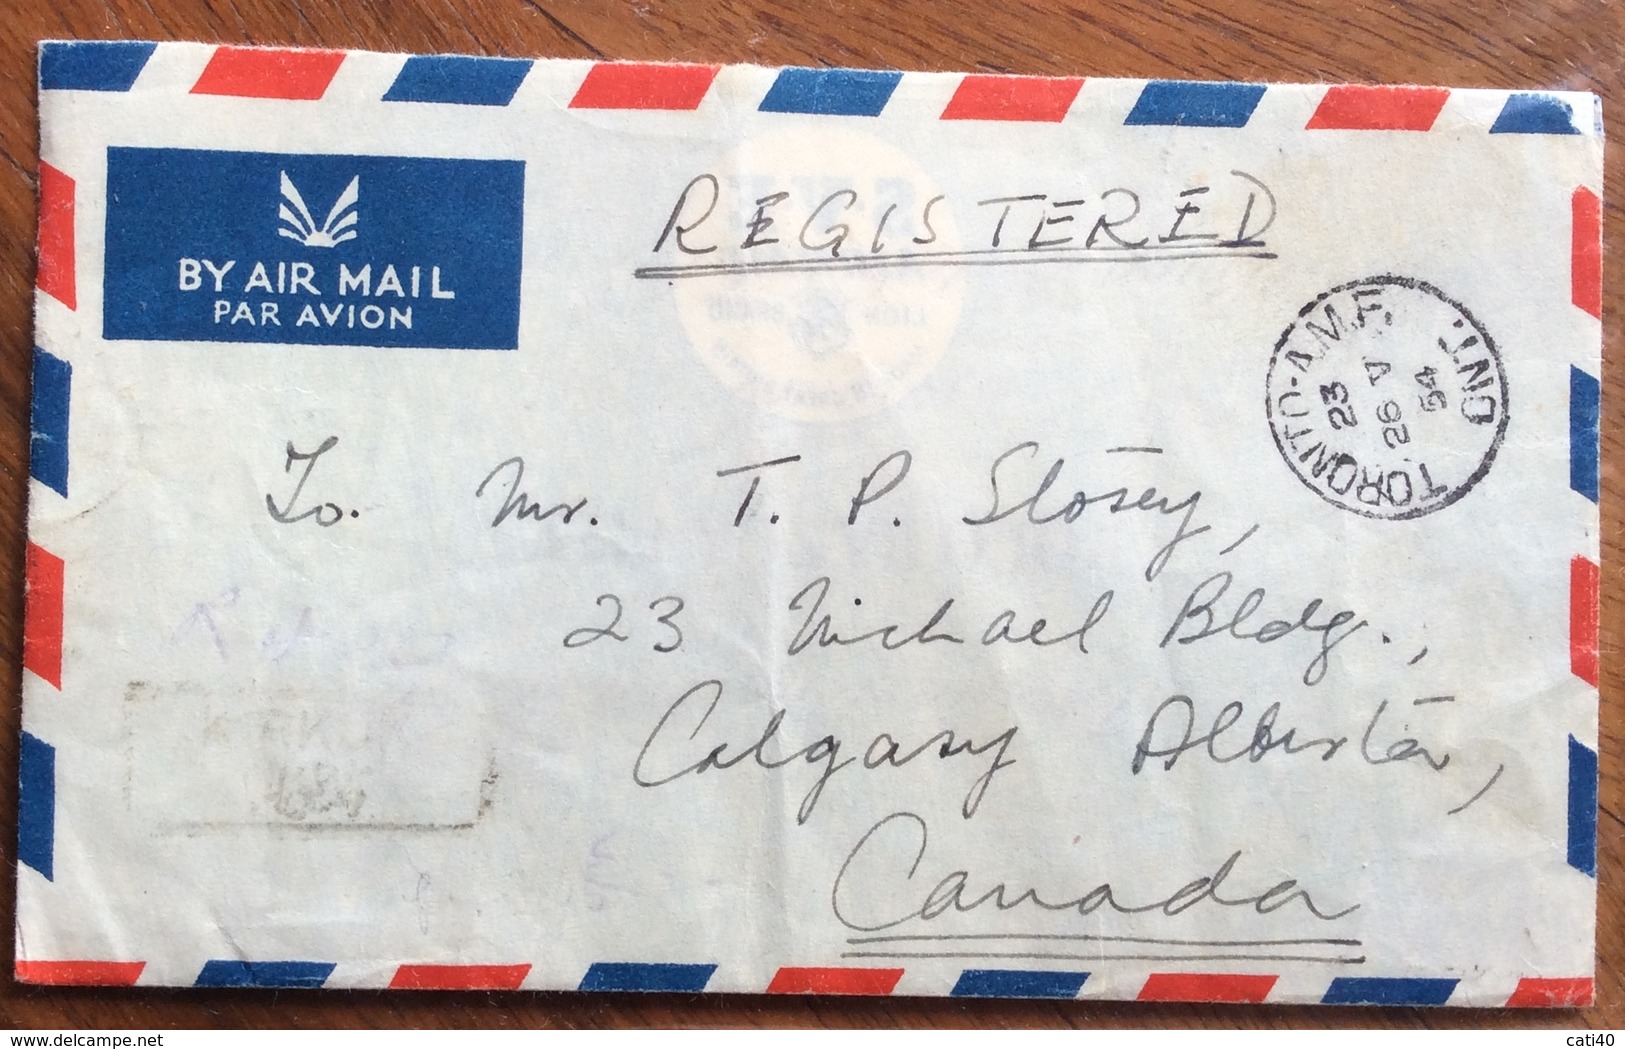 REGISTERED
BY AIR MAIL
PAR AVION
TORONTO-A.M.F. ONT.
23
26 V
54
To. Mr. T. P. Slosey,
23 Michael Bldg.,
Calgary Alberta,
Canada
www.delcampe.net
cati40